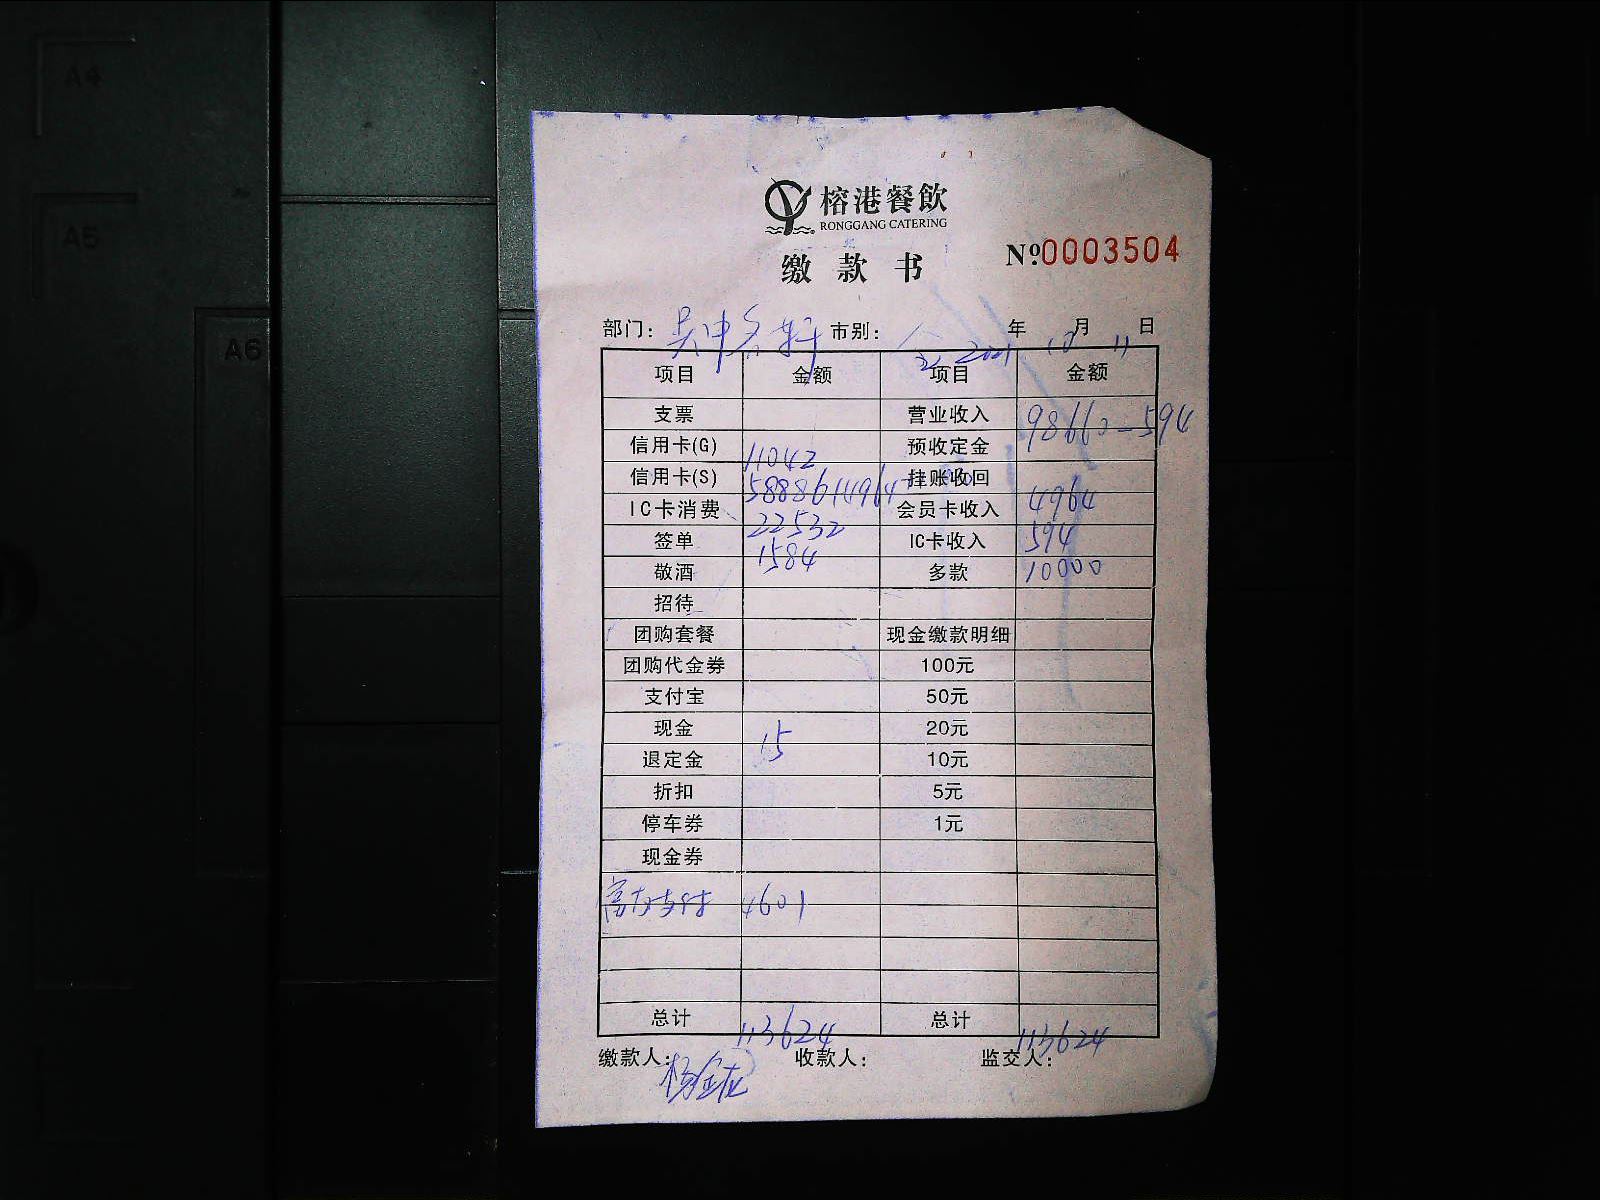 A4
A5
A6
榕港餐飲
RONGGANG CATERING
缴款书
№0003504
部门: 吴中名轩 市别: 全 2021年 10月 11日
项目 金额 项目 金额
支票 营业收入 98660-594
信用卡(G) 11042 预收定金
信用卡(S) 58886 14964 挂账收回
IC卡消费 22532 会员卡收入 4964
签单 1584 IC卡收入 594
敬酒 多款 10000
招待
团购套餐 现金缴款明细
团购代金券 100元
支付宝 50元
现金 15 20元
退定金 10元
折扣 5元
停车券 1元
现金券
支付 4601
总计 113624 总计 113624
缴款人: 杨金龙 收款人: 监交人: